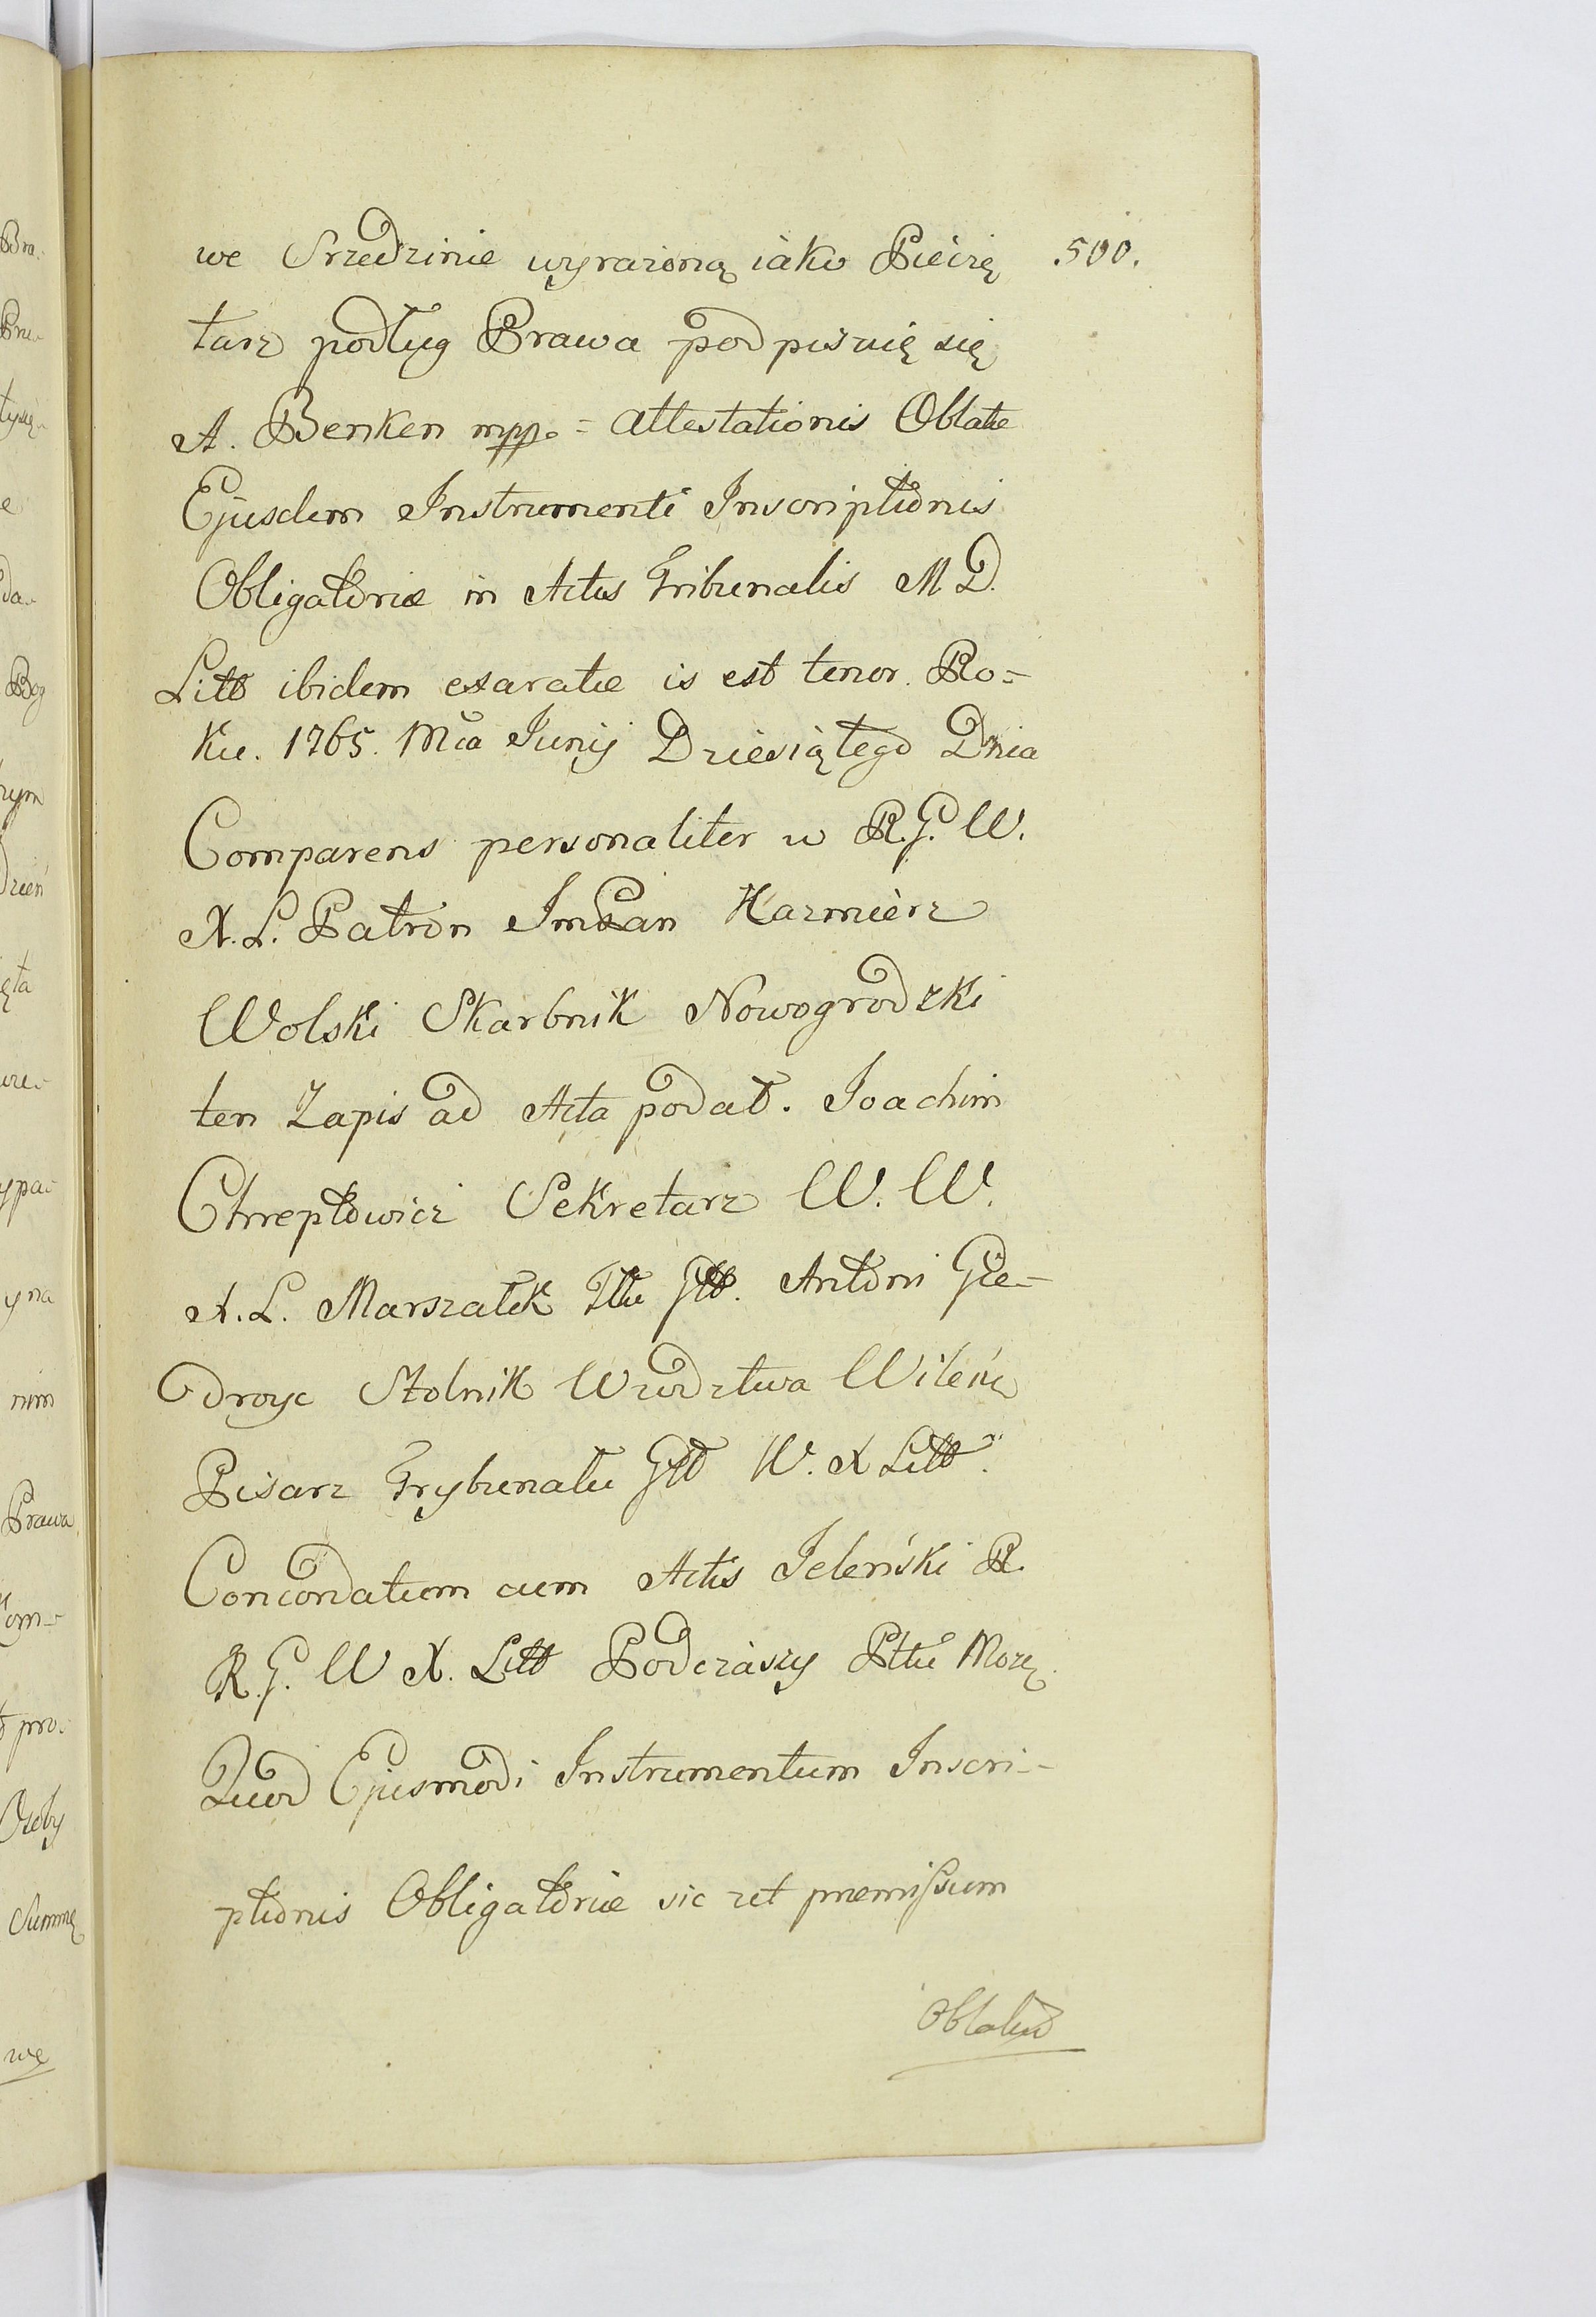 we Srzedzinie wyrażoną iako Pieczę 500.
tarz podług Prawa podpisuię się
A. Benken mpp. = Attestationis Oblatæ
Ejusdem Instrumenti Inscriptionis
Obligatoriæ in Actis Tribunalis M D.
Litt ibidem exaratæ is est tenor. Ro=
ku. 1765. Mca Junij Dziesiątego Dnia
Comparens personaliter u R. G. W.
X. L. Patron ImPan Kazmierz
Wolski Skarbnik Nowogrodzki
ten Zapis ad Acta podał. Joachim
Chreptowicz Sekretarz W. W.
X. L. Marszałek Tłu Głł. Antoni Gie-
droyc Stolnik Wwodztwa Wileń
Pisarz Trybunału Głł W. X Litt.
Concordatum cum Actis Jeleński R.
R. G. W X. Litt Podczaszy Pttu Moz
Quod Ejusmodi Instrumentum Inscri-
ptionis Obligatoriæ sic ut præmissum
Oblatu